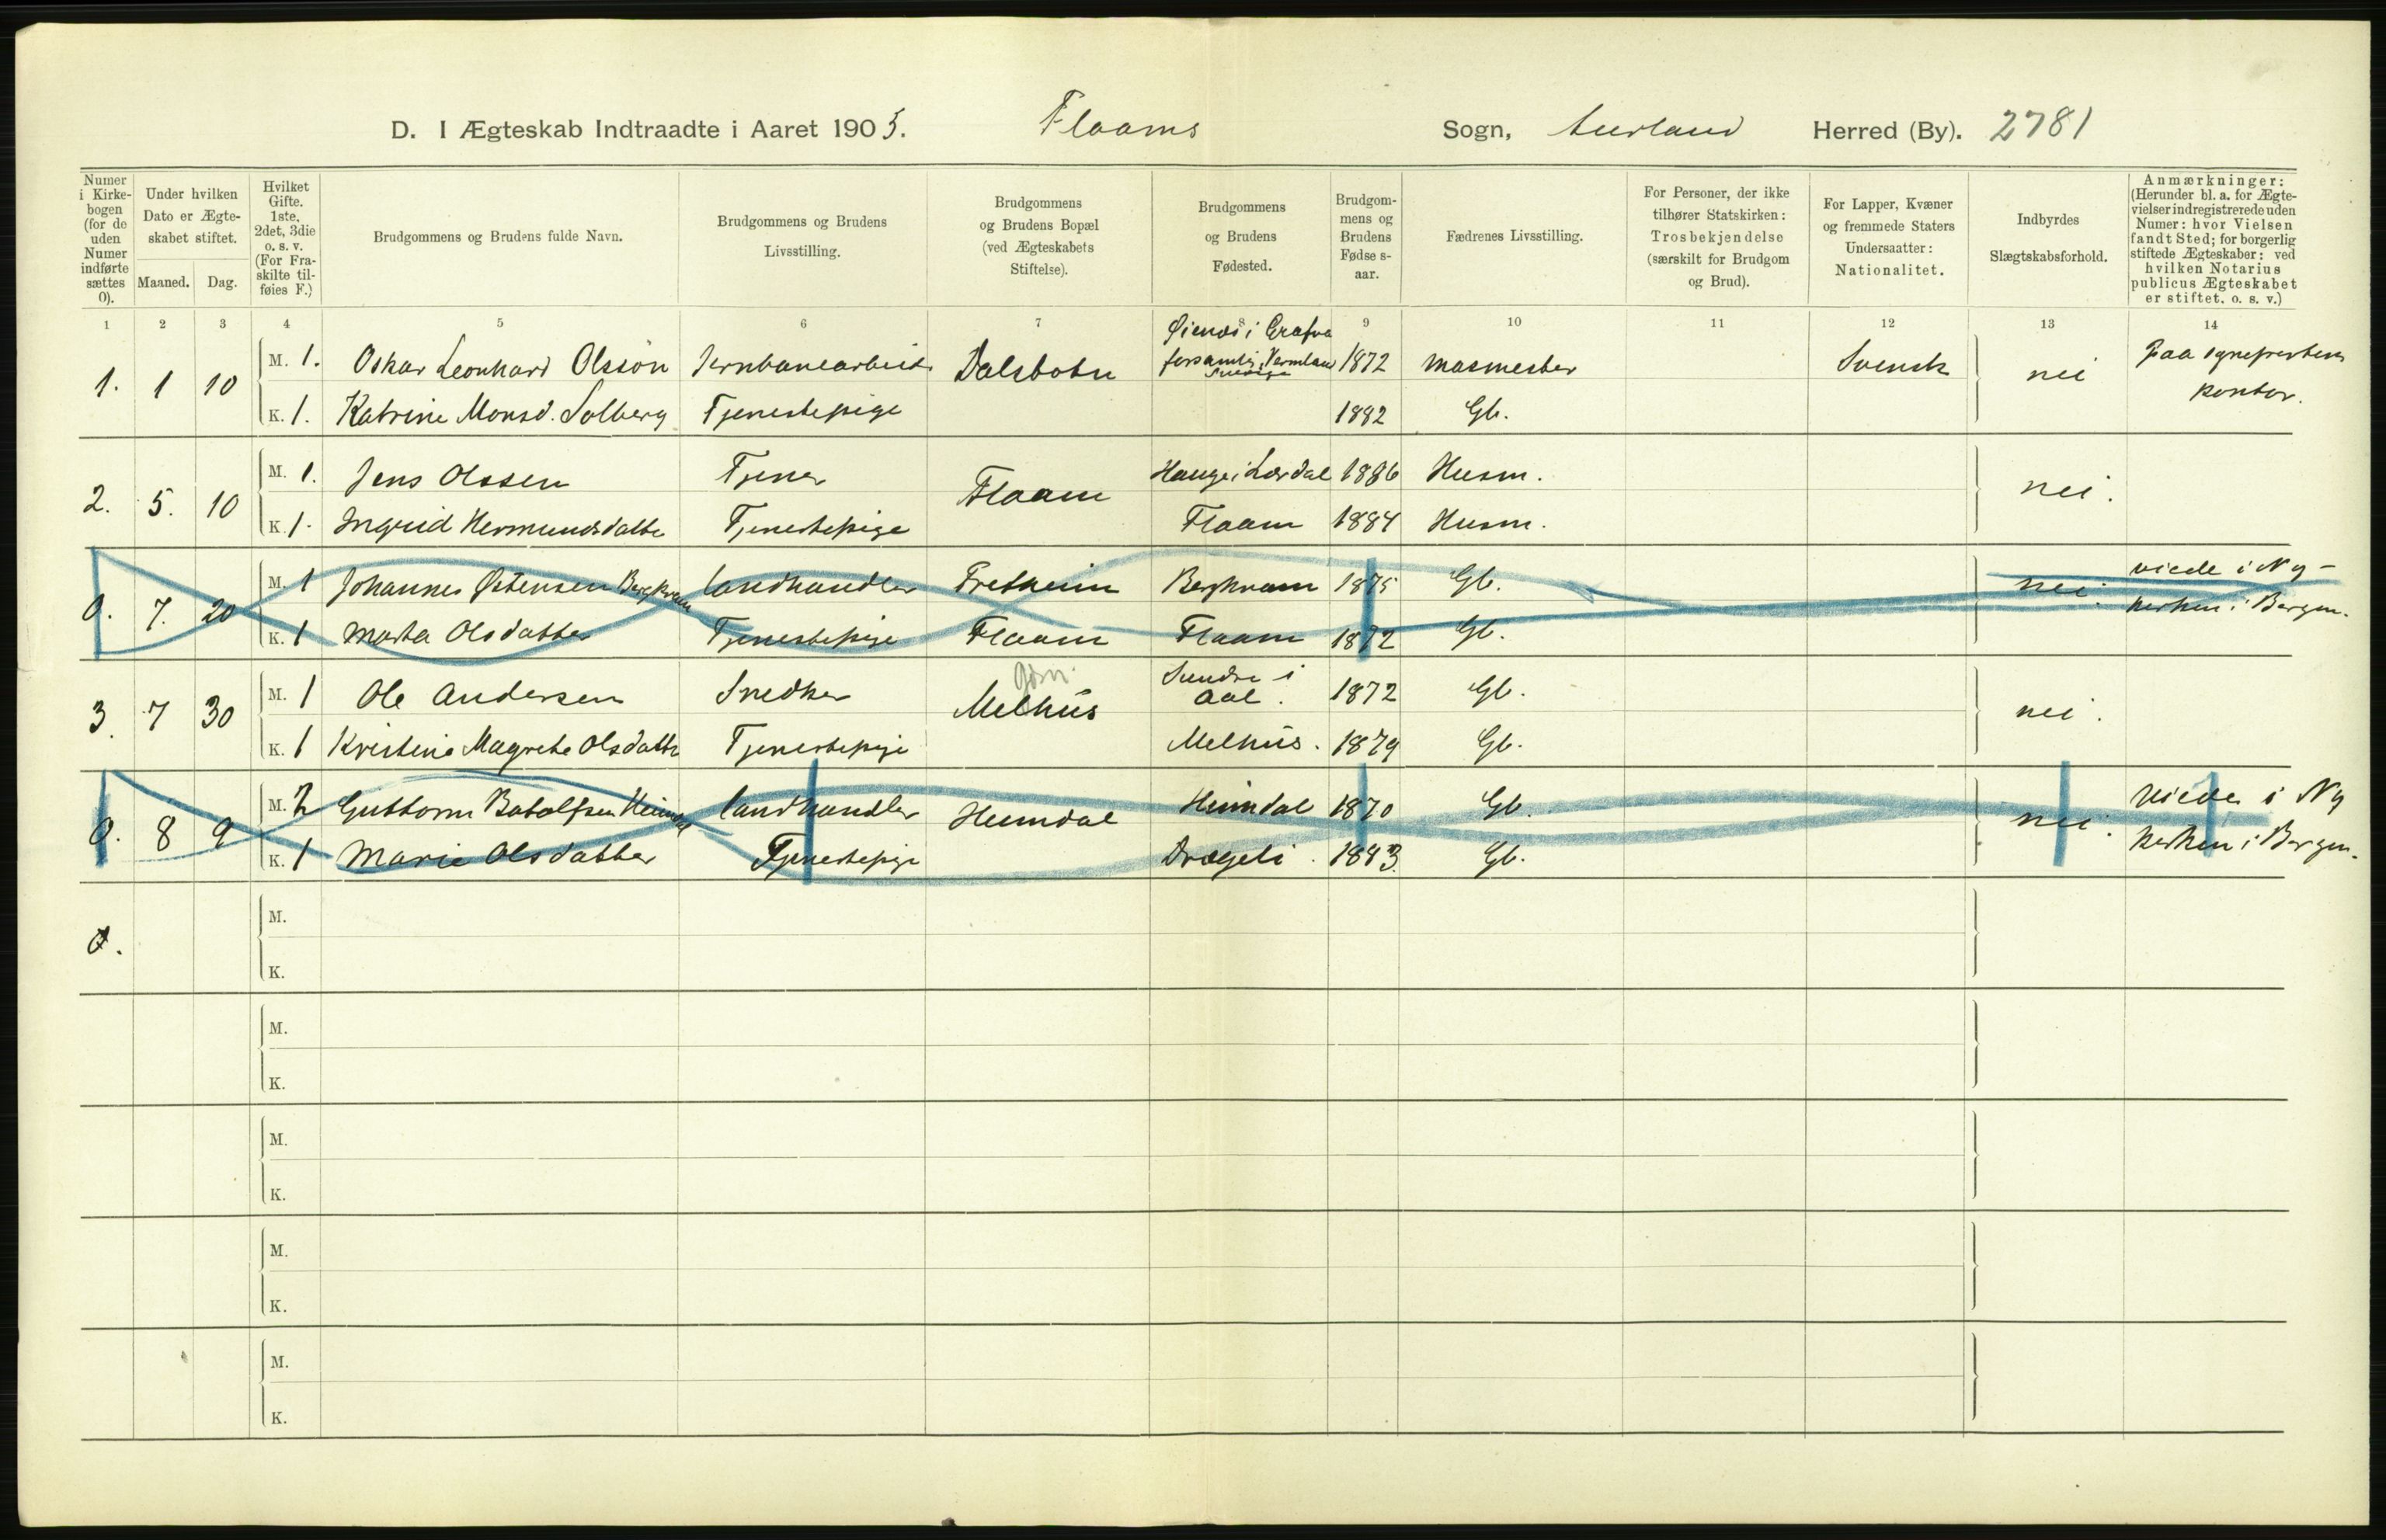 D. I Ægteskab Indtraadte i Aaret 1905. Flaams Sogn, Aurland Herred (By). 2781
Numer i Kirkebogen (for de uden Numer indførte sættes 0).
Under hvilken Dato er Ægteskabet stiftet.
Maaned. Dag.
Hvilket Gifte. 1ste, 2det, 3die o. s. v. (For Fraskilte tilføies F.)
Brudgommens og Brudens fulde Navn.
Brudgommens og Brudens Livsstilling.
Brudgommens og Brudens Bopæl (ved Ægteskabets Stiftelse).
Brudgommens og Brudens Fødested.
Brudgommens og Brudens Fødsesaar.
Fædrenes Livsstilling.
For Personer, der ikke tilhører Statskirken: Trosbekjendelse (særskilt for Brudgom og Brud).
For Lapper, Kvæner og fremmede Staters Undersaatter: Nationalitet.
Indbyrdes Slægtskabsforhold.
Anmærkninger: (Herunder bl. a. for Ægtevielser indregistrerede uden Numer: hvor Vielsen fandt Sted; for borgerlig stiftede Ægteskaber: ved hvilken Notarius publicus Ægteskabet er stiftet. o. s. v.)
1 2 3 4 5 6 7 8 9 10 11 12 13 14
1. 1 10 M. 1. Oskar Leonhard Olsson Jernbanearbeid. Dalsbotn 1872 Masmester Svensk nei Paa sogneprestens kontor.
K. 1. Katrine Monsd. Solberg Tjenestepige 1882 Gb.
2. 5. 10 M. 1. Jens Olssen Tjener Flaam Hauge i Lærdal 1886 Husm. nei.
K. 1. Ingrid Hermundsdatte Tjenestepige Flaam 1884 Husm.
0. 7. 20 M. 1 Johannes Østensen Bergkvam landhandler Fretheim Berkvam 1875 Gb. nei. viede i Ny-
K. 1 Marta Olsdatter Tjenestepige Flaam Flaam 1872 Gb. kirken i Bergen.
3. 7 30 M. 1 Ole Andersen Snedker Melhus Sundre i Aal. 1872 Gb. nei.
K. 1 Kristine Magrete Olsdatte Tjenestepige Melhus. 1879 Gb.
0. 8 9 M. 2 Guttorm Botolfsen Heimdal landhandler Heimdal Heimdal 1870 Gb. nei. Viede i Ny
K. 1 Marie Olsdatter Tjenestepige 1883. Gb. kirken i Bergen.
0. M.
K.
M.
K.
M.
K.
M.
K.
M.
K.